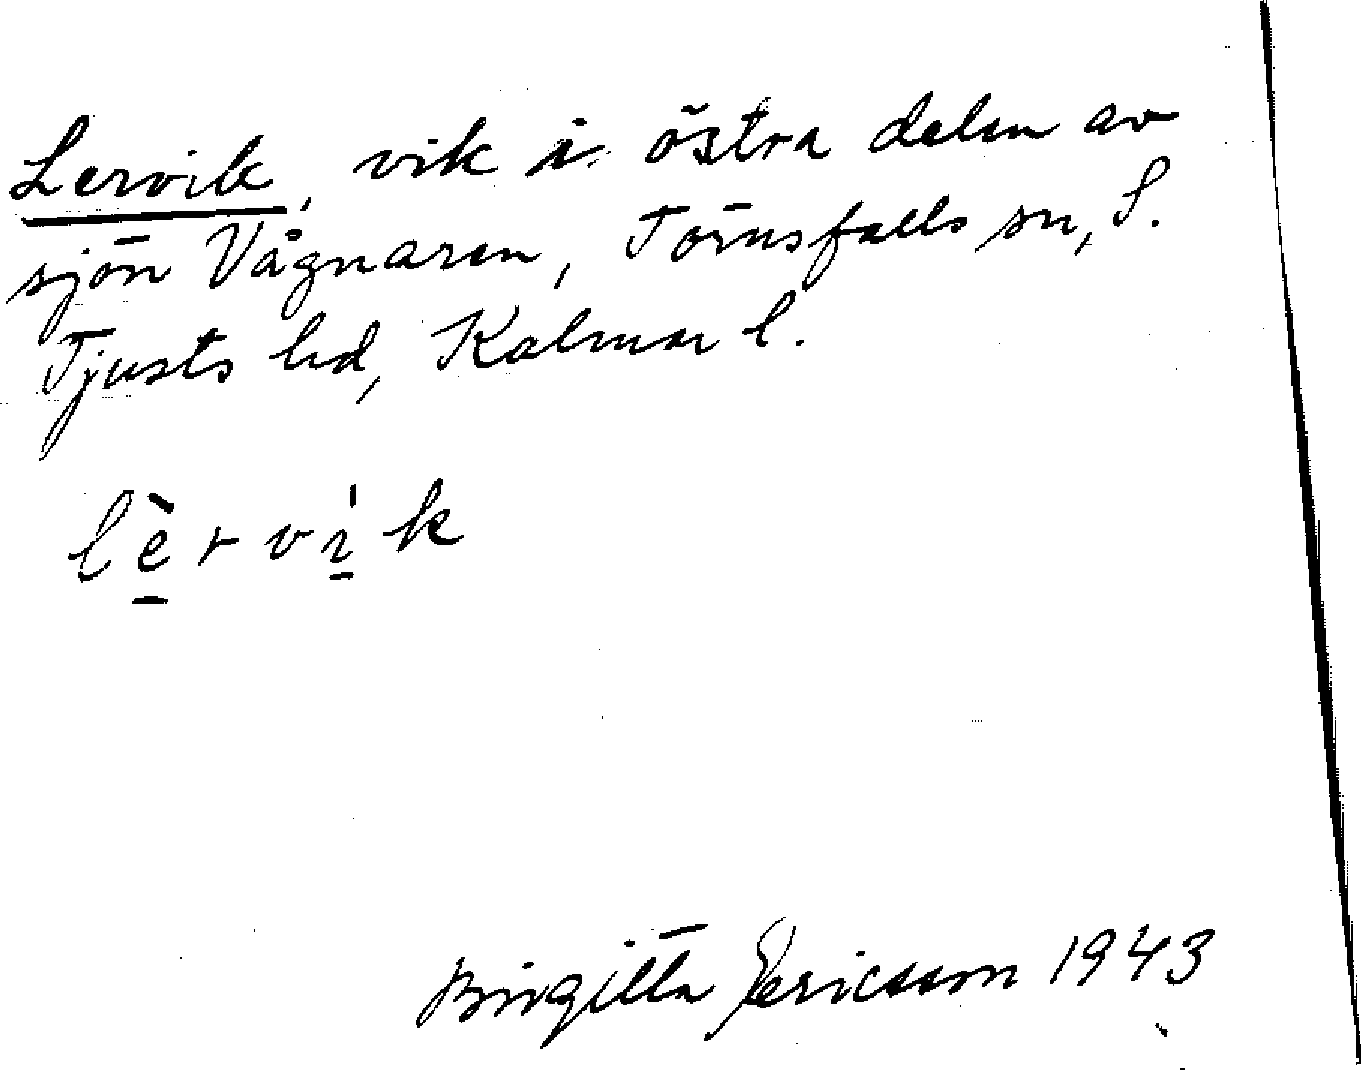 Lervik, vik i östra delen av
sjön Vågnaren, Törnsfalls sn, S.
Tjusts hd, Kalmar l.
lèrvík
Birgitta Ericsson 1943